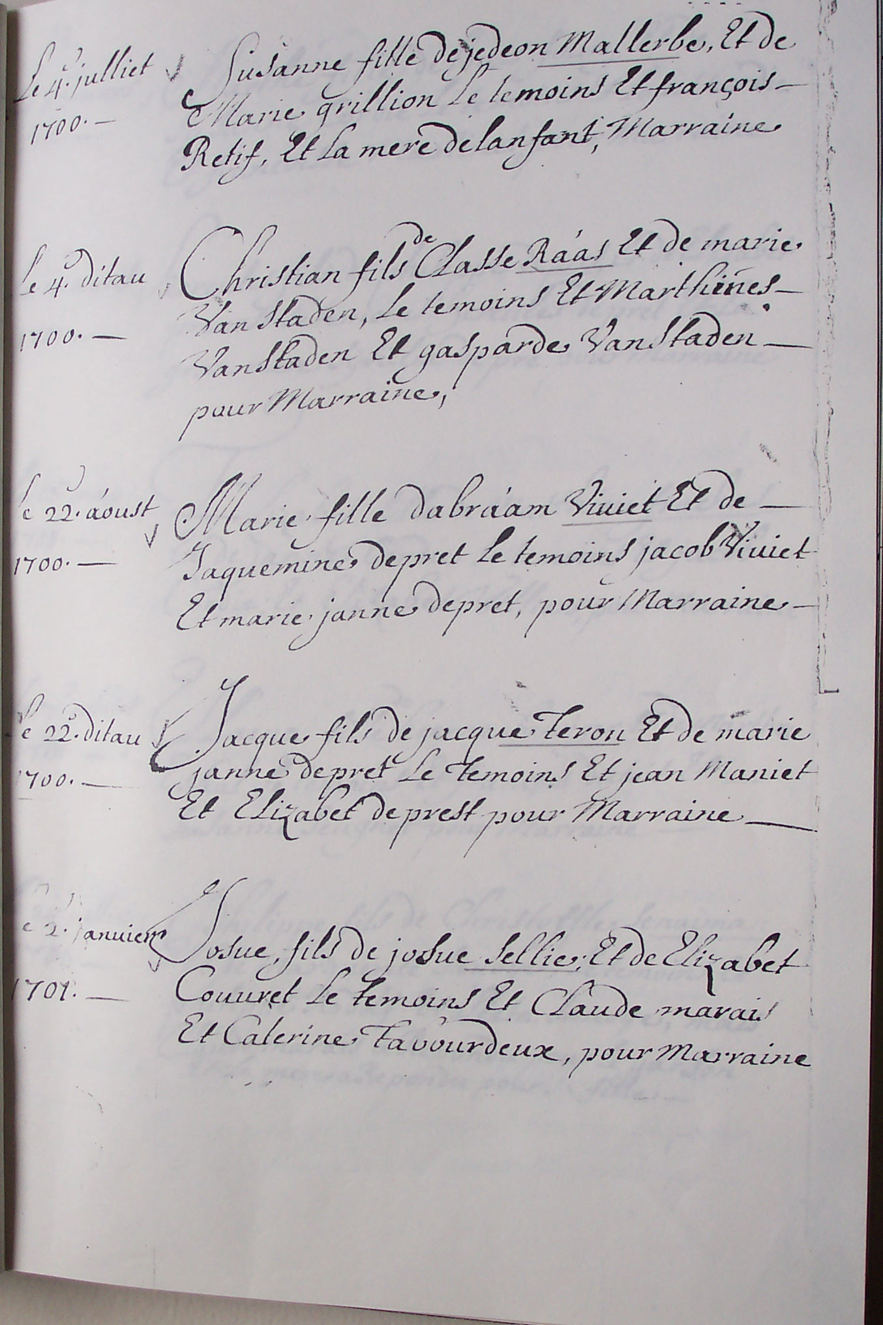 Le 4.e julliet
1700. —
Susanne fille de jedeon Mallerbe, Et de
Marie grillion Le temoins Et françois —
Retif, Et La mere de lanfant, Marraine
Le 4.e ditau
1700. —
Christian fils de Classe Ráás Et de marie
Van Staden, Le temoins Et Marthines —
Van Staden Et gasparde Van Staden —
pour Marraine,
Le 22. áoust
1700. —
Marie fille dabráam Viviet Et de —
Jaquemine depret Le temoins jacob Viviet
Et marie janne depret, pour Marraine —
Le 22.e ditau
1700. —
Jacque fils de jacque Terou Et de marie
janne depret Le temoins Et jean Maniet
Et Elizabet deprest pour Marraine —
Le 2. janvier
1701. —
Josue, fils de josue Sellie, Et de Elizabet
Couuret Le temoins Et Claude marais
Et Caterine Tavourdeux, pour Marraine